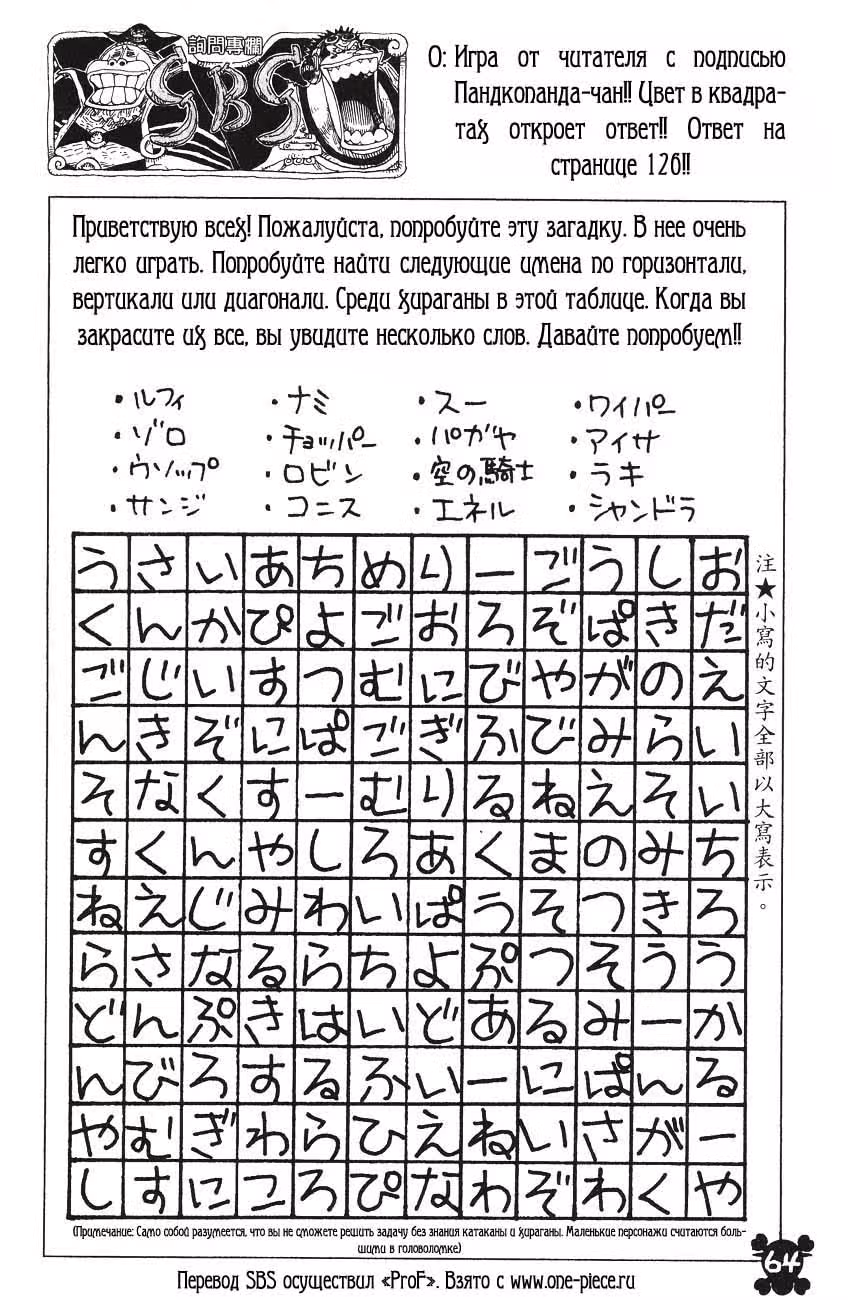 詢問專欄
SBS
О: Игра от читателя с подписью
Пандкопанда-чан!! Цвет в квадра-
тах откроет ответ!! Ответ на
странице 126!!
Приветствую всех! Пожалуйста, попробуйте эту загадку. В нее очень
легко играть. Попробуйте найти следующие имена по горизонтали,
вертикали или диагонали. Среди хираганы в этой таблице. Когда вы
закрасите их все, вы увидите несколько слов. Давайте попробуем!!
・ルフィ ・ナミ ・スー ・ワイパー
・ゾロ ・チョッパー ・パガヤ ・アイサ
・ウソップ ・ロビン ・空の騎士 ・ラキ
・サンジ ・コニス ・エネル ・シャンドラ
うさいあちめりーごうしお
くんかぴよごおろぞぱきだ
ごじいすつむにびやがのえ
んきぞにぱごぎふびみらい
そなくすーむりるねえそい
すくんやしろあくまのみち
ねえじみわいぱうそつきろ
らさなるらちよぷつそうう
どんぷきはいどあるみーか
んびろするふいーにぱんる
やむぎわらひえねいさがー
しすにころぴなわぞわくや
注★小寫的文字全部以大寫表示。
(Примечание: Само собой разумеется, что вы не сможете решить задачу без знания катаканы и хираганы. Маленькие персонажи считаются боль-
шими в головоломке)
64
Перевод SBS осуществил «ProF». Взято с www.one-piece.ru